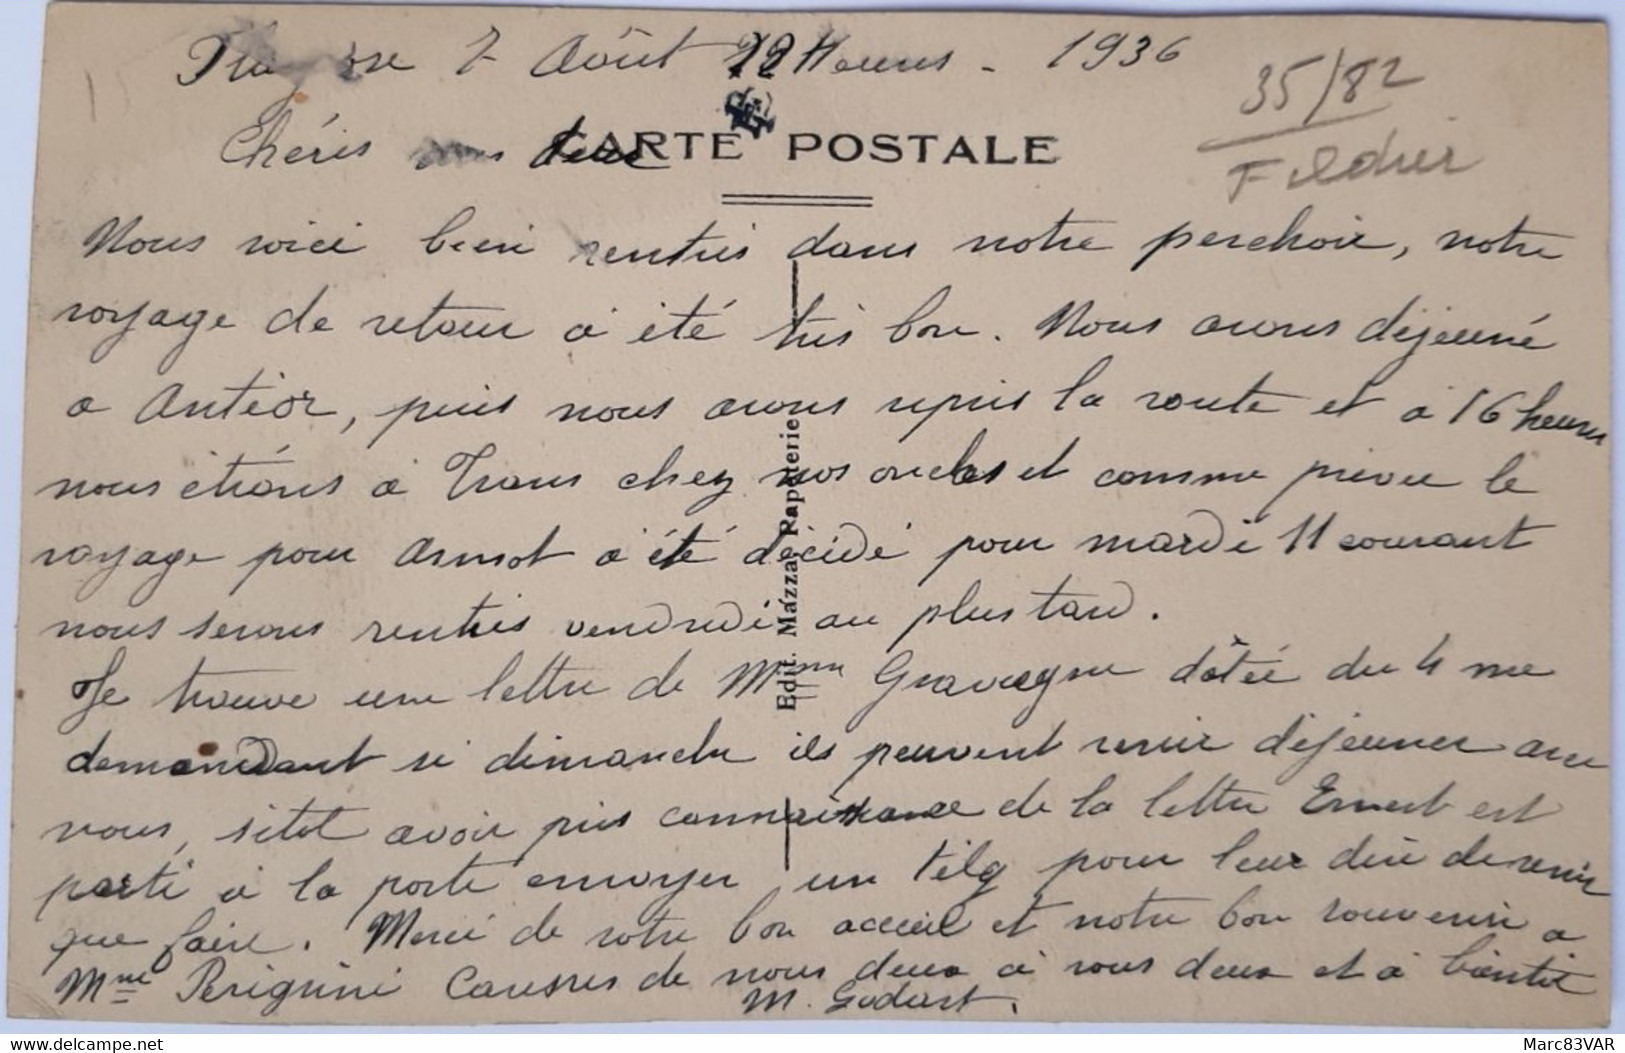 7 Août 12 Heures - 1936
35/82
CARTE POSTALE
Chéris vous deux
Nous voici bien rentrés dans notre perchoir, notre
voyage de retour a été très bon. Nous avons déjeuné
a Antéor, puis nous avons repris la route et à 16 heures
nous étions à Trans chez nos oncles et comme prévu le
voyage pour Annot a été décidé pour mardi 11 courant
nous serons rentrés vendredi au plus tard.
Je trouve une lettre de Mme Gravagne dâtée du 4 me
demandant si dimanche ils peuvent venir déjeuner avec
nous, sitot avoir pris connaissance de la lettre Ernest est
parti à la poste envoyer un télg pour leur dire de venir
que faire. Merci de votre bon accueil et notre bon souvenir a
Mme Perignini Caresses de nous deux à vous deux et à bientôt
M. Godart.
Edit. Mazza, Papeterie
Marc83VAR